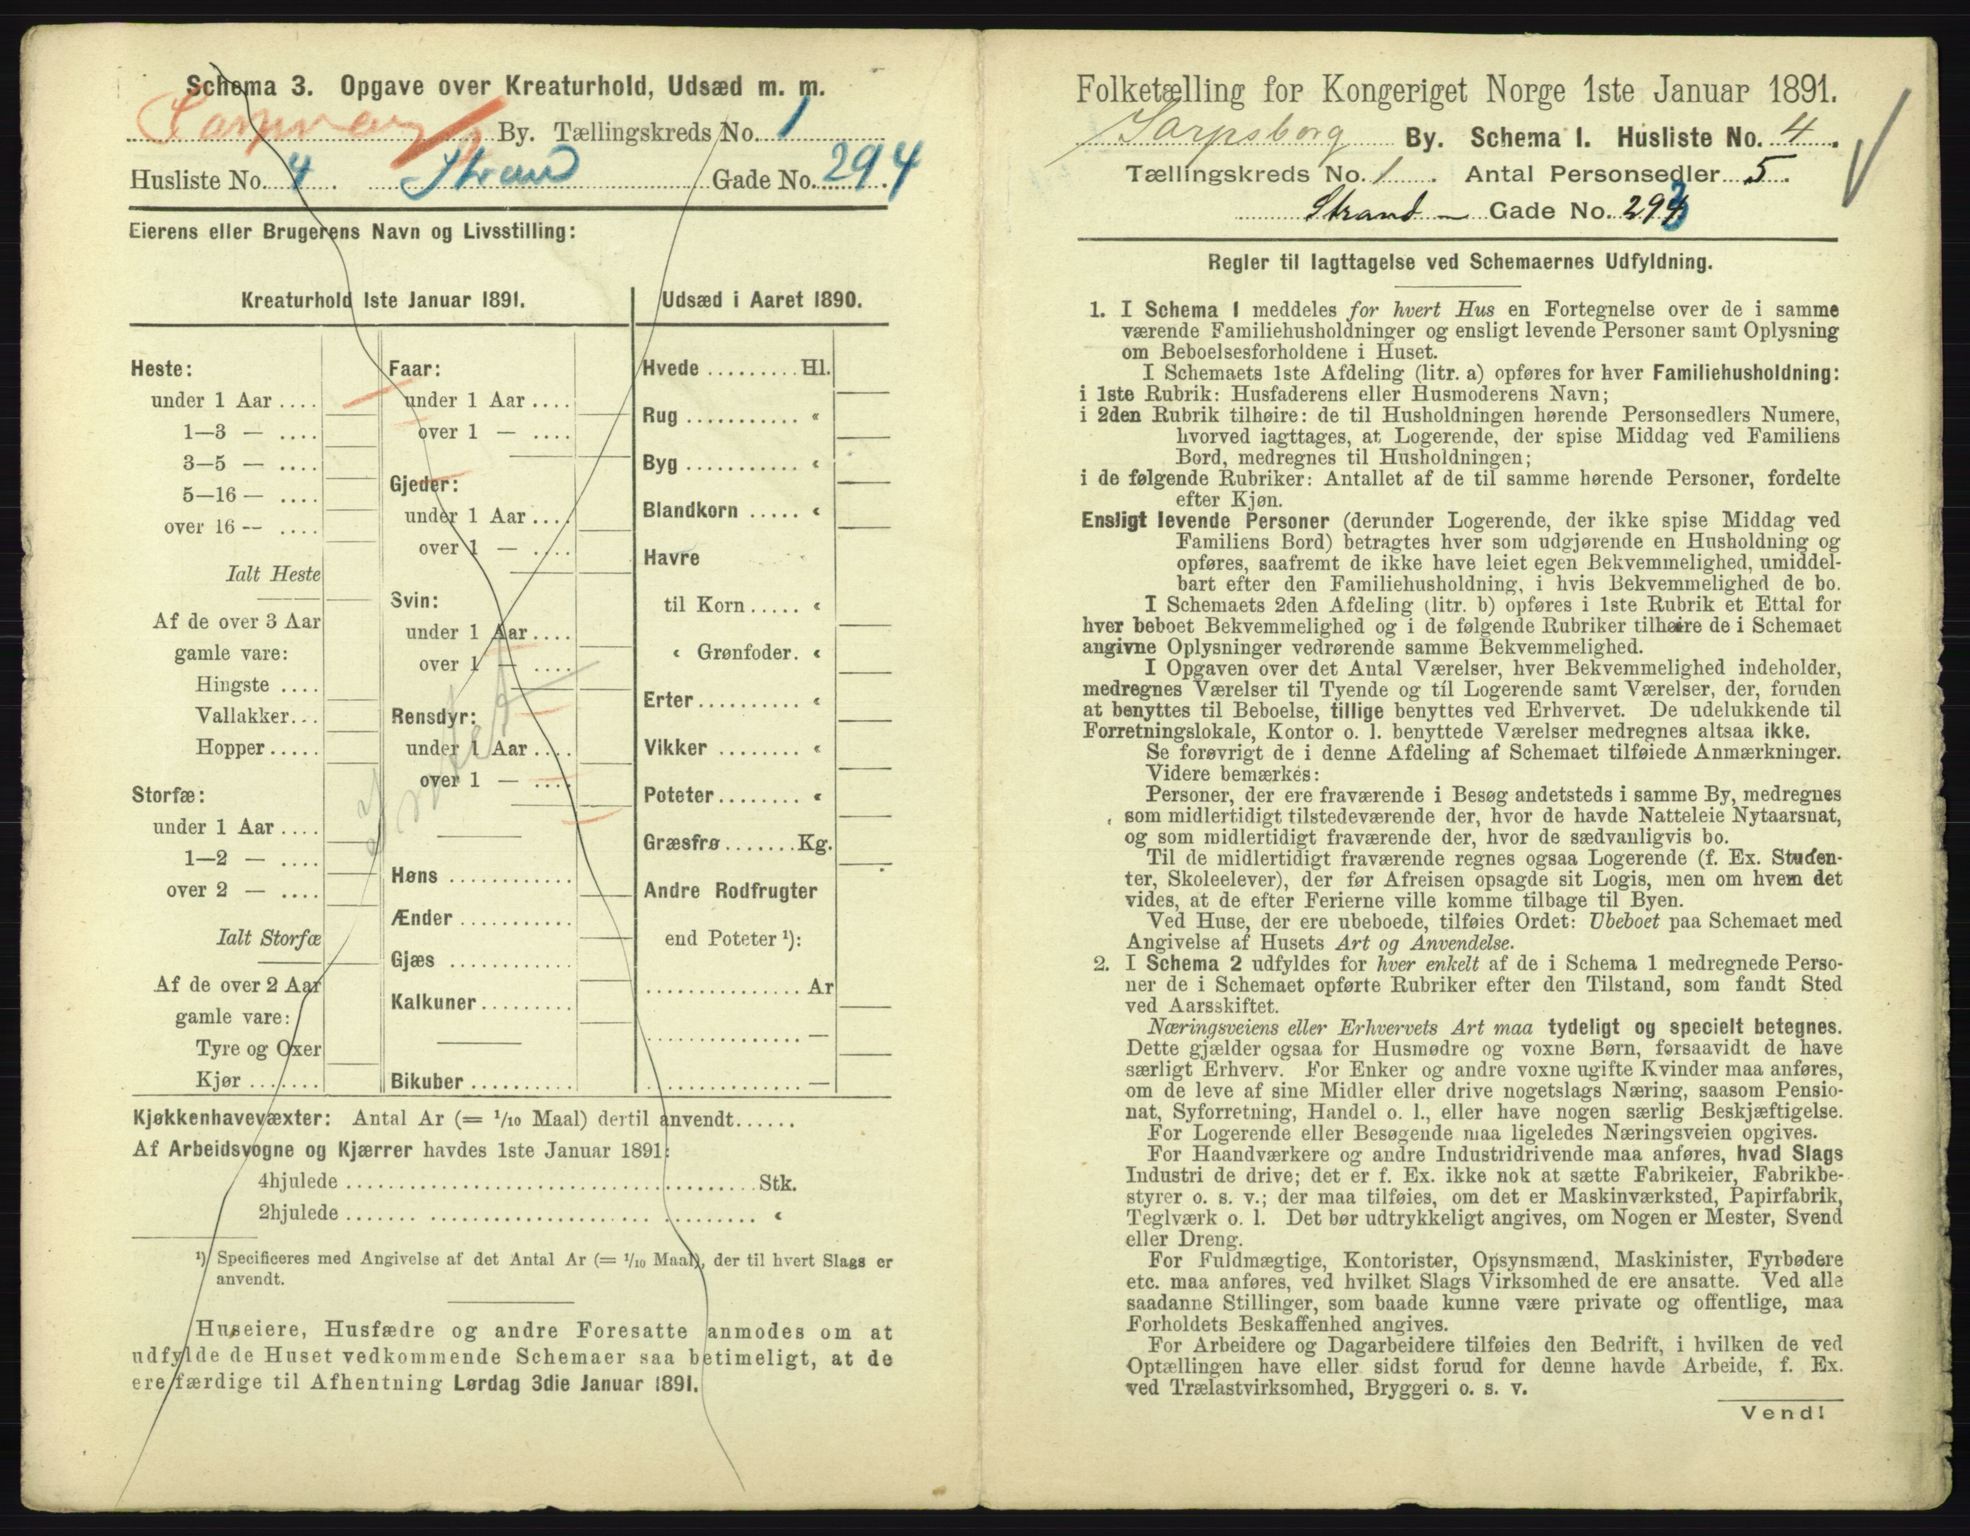 Schema 3. Opgave over Kreaturhold, Udsæd m. m.
By. Tællingskreds No. 1
Husliste No. 4. Strand Gade No. 294.
Eierens eller Brugerens Navn og Livsstilling:
Kreaturhold 1ste Januar 1891.
Heste:
under 1 Aar ....
1—3 — ....
3—5 — ....
5—16 — ....
over 16 — ....
Ialt Heste
Af de over 3 Aar
gamle vare:
Hingste ....
Vallakker...
Hopper.....
Storfæ:
under 1 Aar ....
1—2 — ....
over 2 — ....
Ialt Storfæ
Af de over 2 Aar
gamle vare:
Tyre og Oxer
Kjør .......
Faar:
under 1 Aar ....
over 1 — ....
Gjeder:
under 1 Aar ....
over 1 — ....
Svin:
under 1 Aar....
over 1 — ....
Rensdyr:
under 1 Aar ....
over 1 — ....
Høns ............
Ænder ............
Gjæs ............
Kalkuner.........
Bikuber ..........
Udsæd i Aaret 1890.
Hvede ......... Hl.
Rug ........... «
Byg ........... «
Blandkorn ..... «
Havre
til Korn ..... «
« Grønfoder. «
Erter.......... «
Vikker ........ «
Poteter........ «
Græsfrø ....... Kg.
Andre Rodfrugter
end Poteter ¹):
............... Ar
............... —
............... —
Intet
Kjøkkenhavevæxter: Antal Ar (= 1/10 Maal) dertil anvendt......
Af Arbeidsvogne og Kjærrer havdes 1ste Januar 1891:
4hjulede ........................................ Stk.
2hjulede ........................................ «
¹) Specificeres med Angivelse af det Antal Ar (= 1/10 Maal), der til hvert Slags er
anvendt.
Huseiere, Husfædre og andre Foresatte anmodes om at
udfylde de Huset vedkommende Schemaer saa betimeligt, at de
ere færdige til Afhentning Lørdag 3die Januar 1891.
Folketælling for Kongeriget Norge 1ste Januar 1891.
Sarpsborg By. Schema I. Husliste No. 4.
Tællingskreds No. 1. Antal Personsedler 5.
Strand - Gade No. 293
Regler til Iagttagelse ved Schemaernes Udfyldning.
1. I Schema 1 meddeles for hvert Hus en Fortegnelse over de i samme
værende Familiehusholdninger og ensligt levende Personer samt Oplysning
om Beboelsesforholdene i Huset.
I Schemaets 1ste Afdeling (litr. a) opføres for hver Familiehusholdning:
i 1ste Rubrik: Husfaderens eller Husmoderens Navn;
i 2den Rubrik tilhøire: de til Husholdningen hørende Personsedlers Numere,
hvorved iagttages, at Logerende, der spise Middag ved Familiens
Bord, medregnes til Husholdningen;
i de følgende Rubriker: Antallet af de til samme hørende Personer, fordelte
efter Kjøn.
Ensligt levende Personer (derunder Logerende, der ikke spise Middag ved
Familiens Bord) betragtes hver som udgjørende en Husholdning og
opføres, saafremt de ikke have leiet egen Bekvemmelighed, umiddel-
bart efter den Familiehusholdning, i hvis Bekvemmelighed de bo.
I Schemaets 2den Afdeling (litr. b) opføres i 1ste Rubrik et Ettal for
hver beboet Bekvemmelighed og i de følgende Rubriker tilhøire de i Schemaet
angivne Oplysninger vedrørende samme Bekvemmelighed.
I Opgaven over det Antal Værelser, hver Bekvemmelighed indeholder,
medregnes Værelser til Tyende og til Logerende samt Værelser, der, foruden
at benyttes til Beboelse, tillige benyttes ved Erhvervet. De udelukkende til
Forretningslokale, Kontor o. l. benyttede Værelser medregnes altsaa ikke.
Se forøvrigt de i denne Afdeling af Schemaet tilføiede Anmærkninger.
Videre bemærkes:
Personer, der ere fraværende i Besøg andetsteds i samme By, medregnes
som midlertidigt tilstedeværende der, hvor de havde Natteleie Nytaarsnat,
og som midlertidigt fraværende der, hvor de sædvanligvis bo.
Til de midlertidigt fraværende regnes ogsaa Logerende (f. Ex. Studen-
ter, Skoleelever), der før Afreisen opsagde sit Logis, men om hvem det
vides, at de efter Ferierne ville komme tilbage til Byen.
Ved Huse, der ere ubeboede, tilføies Ordet: Ubeboet paa Schemaet med
Angivelse af Husets Art og Anvendelse.
2. I Schema 2 udfyldes for hver enkelt af de i Schema 1 medregnede Perso-
ner de i Schemaet opførte Rubriker efter den Tilstand, som fandt Sted
ved Aarsskiftet.
Næringsveiens eller Erhvervets Art maa tydeligt og specielt betegnes.
Dette gjælder ogsaa for Husmødre og voxne Børn, forsaavidt de have
særligt Erhverv. For Enker og andre voxne ugifte Kvinder maa anføres,
om de leve af sine Midler eller drive nogetslags Næring, saasom Pensio-
nat, Syforretning, Handel o. l., eller have nogen særlig Beskjæftigelse.
For Logerende eller Besøgende maa ligeledes Næringsveien opgives.
For Haandværkere og andre Industridrivende maa anføres, hvad Slags
Industri de drive; det er f. Ex. ikke nok at sætte Fabrikeier, Fabrikbe-
styrer o. s. v.; der maa tilføies, om det er Maskinværksted, Papirfabrik,
Teglværk o. l. Det bør udtrykkeligt angives, om Nogen er Mester, Svend
eller Dreng.
For Fuldmægtige, Kontorister, Opsynsmænd, Maskinister, Fyrbødere
etc. maa anføres, ved hvilket Slags Virksomhed de ere ansatte. Ved alle
saadanne Stillinger, som baade kunne være private og offentlige, maa
Forholdets Beskaffenhed angives.
For Arbeidere og Dagarbeidere tilføies den Bedrift, i hvilken de ved
Optællingen have eller sidst forud for denne havde Arbeide, f. Ex.
ved Trælastvirksomhed, Bryggeri o. s. v.
Vend!